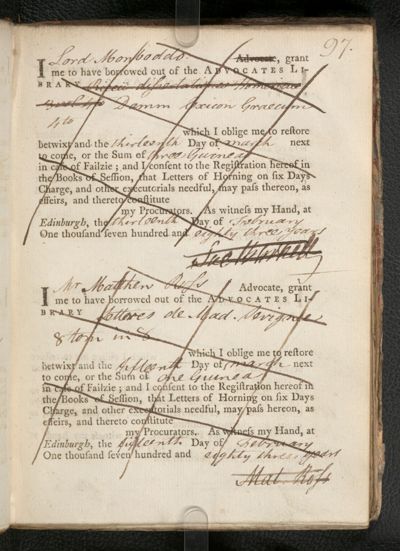 97.
I Lord Monboddo Advocate, grant
me to have borrowed out of the ADVOCATES LI-
BRARY
Damm Lexicon Graecum
4to
which I oblige me to reſtore
betwixt and the thirteenth Day of march next
to come, or the Sum of three Guineas
in caſe of Failzie; and I conſent to the Regiſtration hereof in
the Books of Seſſion, that Letters of Horning on ſix Days
Charge, and other executorials needful, may paſs thereon, as
effeirs, and thereto conſtitute
my Procurators. As witneſs my Hand, at
Edinburgh, the thirteenth Day of February
One thouſand ſeven hundred and eighty three years
I Mr Matthew Roſs Advocate, grant
me to have borrowed out of the ADVOCATES LI-
BRARY Lettres de Mad. Sevigné
8 tom in 8
which I oblige me to reſtore
betwixt and the fifteenth Day of march next
to come, or the Sum of one Guinea
in caſe of Failzie; and I conſent to the Regiſtration hereof in
the Books of Seſſion, that Letters of Horning on ſix Days
Charge, and other executorials needful, may paſs hereon, as
effeirs, and thereto conſtitute
my Procurators. As witneſs my Hand, at
Edinburgh, the fifteenth Day of February
One thouſand ſeven hundred and eighty three years
Mat. Roſs